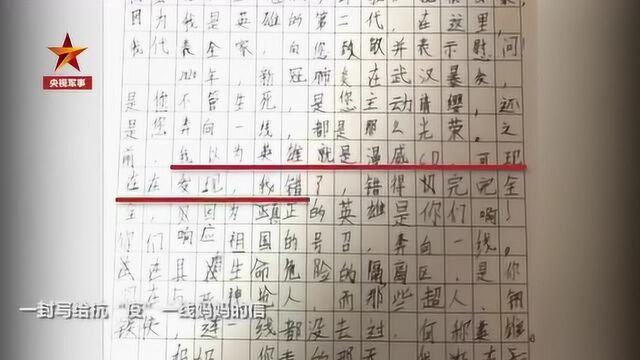 因为我是英雄的第二代，在这里，
我代表全家，向您致敬并表示慰问！
2020年，新冠肺炎在武汉暴发，
是您不管生死，是您主动请缨，还
是您奔向一线，都是那么光荣。之
前，我以为英雄就是漫威、DC，可现
在在发现，我错了，错得彻完完全
全，因为真正的英雄是你们啊！
你们响应祖国的号召，奔向一线。
具生命危险的隔离区，是你
抢人 而那些超人、钢
铁侠，连一线都没去过，何称英雄
妈妈，你走的那天
央视军事
一封写给抗“疫”一线妈妈的信